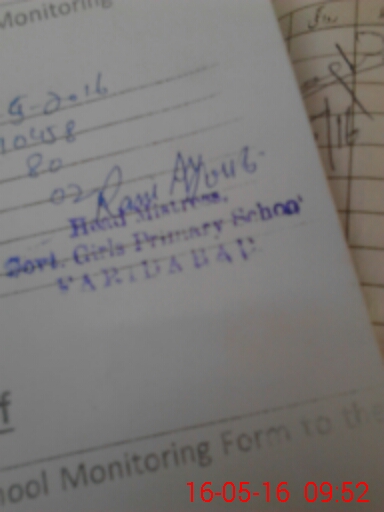 Monitoring
5-2016
10458
80
02
Rani Ayub
Head Mistress,
Govt. Girls Primary School
FARIDABAD
f
hool Monitoring Form to the
16-05-16 09:52